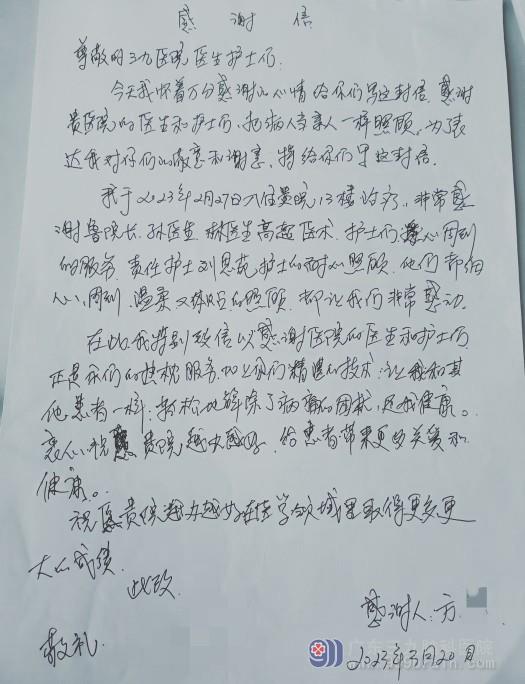 感 谢 信
尊敬的三九医院医生护士们:
今天我怀着万分感谢的心情给你们写这封信。感谢
贵医院的医生和护士们,把病人当亲人一样照顾,为了表
达我对你们的敬意和谢意,特给你们写这封信。
我于2023年2月27日入住贵院13楼治疗,非常感
谢鲁院长、孙医生、林医生高超医术,护士们 心周到
的服务,责任护士刘思苑护士的耐心照顾,他们都细
心、周到、温柔又体贴的照顾,都让我们非常感动。
在此我特别致信以感谢医院的医生和护士们
正是你们的 服务,加上你们精湛的技术:让我和其
他患者一样:轻松地解除了病 的困扰,还我健康。
衷心祝 贵院越办越好,给患者带来更多关爱和
健康。
祝 贵院越办越好在医学领域里取得更多更
大的成绩
此致
敬礼
感谢人:方
2023年3月20日
广东三九脑科医院